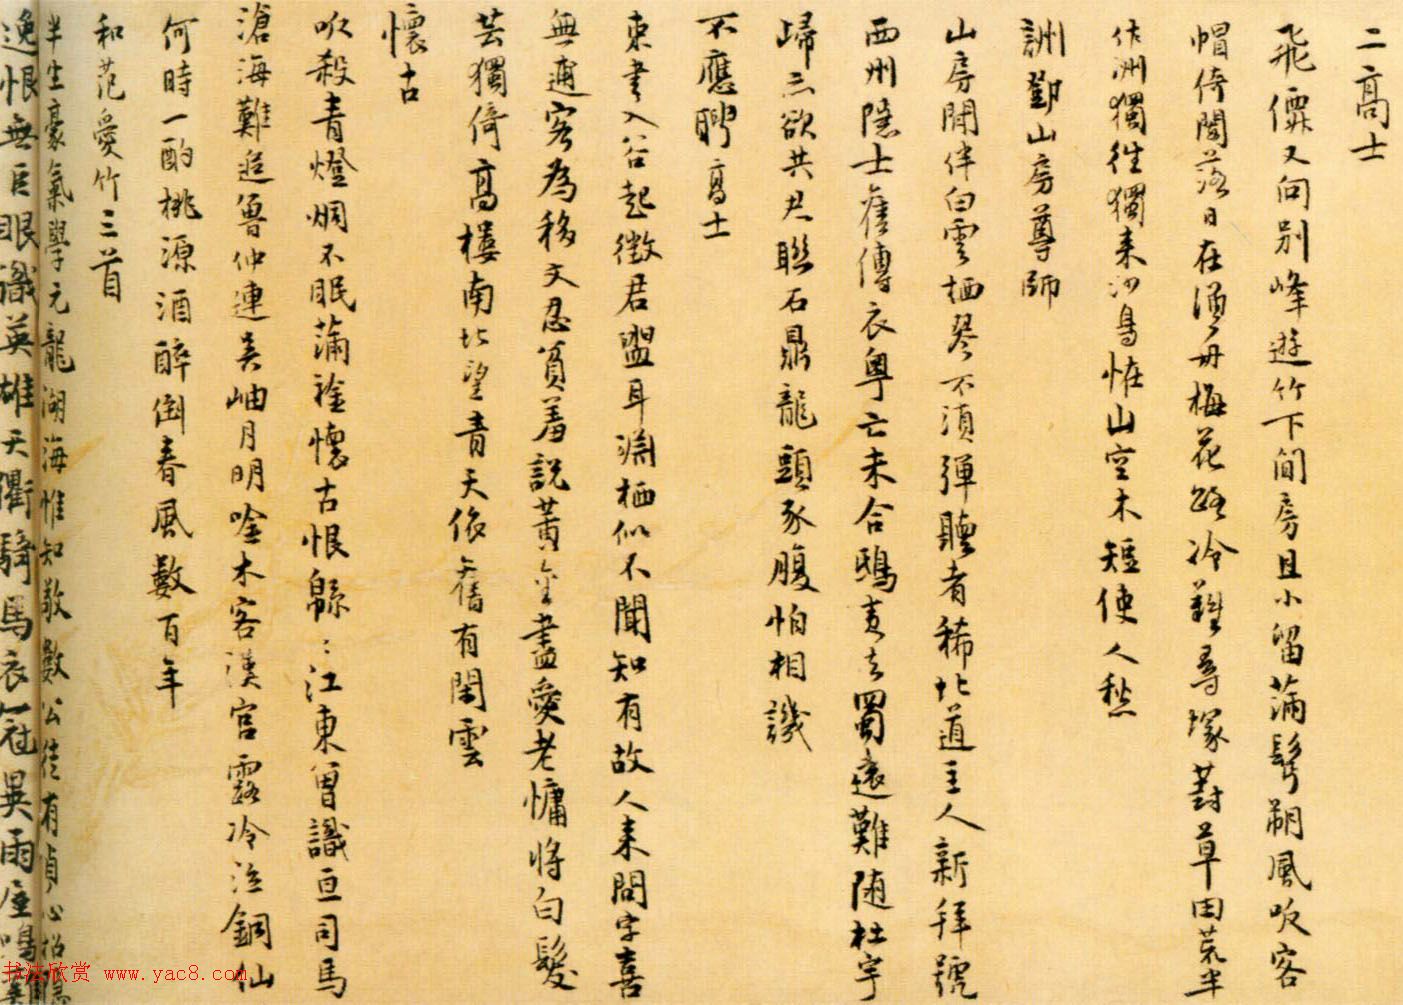 二高士
飛儤又向別峰遊竹下閒房且小留滿髩朔風吹客
帽倚闌落日在漁舟梅花路冷難尋塚葑草田荒半
作洲獨往獨来沙鳥怪山空木短使人愁
詶鄧山房尊師
山房閒伴白雲栖琴不須弾聽者稀北道主人新拜號
西州隱士舊傳衣粤亡未合鴟夷去蜀遠難随杜宇
歸亦欲共君聯石鼎龍頭豕腹怕相譏
不應聘高士
束書入谷起徵君盥耳深栖似不聞知有故人来問字喜
無逋客為移文忍貧羞説黄金盡愛老慵将白髮
芸獨倚高樓南北望青天依舊有閑雲
懷古
吹殺青燈烱不眠滿襟懷古恨緜〻江東曾識亘司馬
滄海難逃魯仲連吴岫月明啥木客漢宫露冷泣銅仙
何時一酌桃源酒醉倒春風數百年
和范愛竹三首
半生豪氣學元龍湖海惟知敬數公徒有貞心招
逸恨無巨眼識英雄天衢騎馬衣冠異雨座鳴
书法欣赏 www.yac8.com